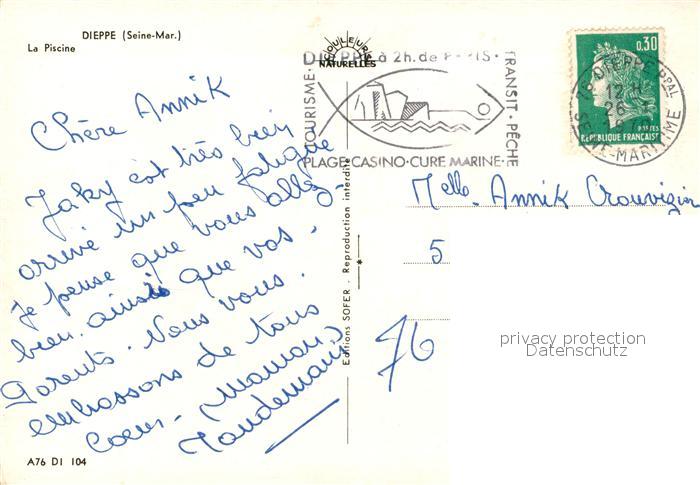 DIEPPE (Seine-Mar.)
La Piscine
COULEURS
NATURELLES
DIEPPE à 2h. de PARIS
TOURISME
TRANSIT · PÊCHE
PLAGE · CASINO · CURE MARINE
0,30
POSTES
RÉPUBLIQUE FRANÇAISE
76 DIEPPE Ppal
12 H
26
SEINE-MARITIME
Chère Annik
Jaky est très bien
arrivé un peu fatigué
je pense que vous allez
bien ainsi que vos
Parents. Nous vous
embrassons de tous
Coeur. Maman
Melle. Annik Crouvizier
5
76
privacy protection
Datenschutz
Editions SOFER. Reproduction interdite
A76 DI 104